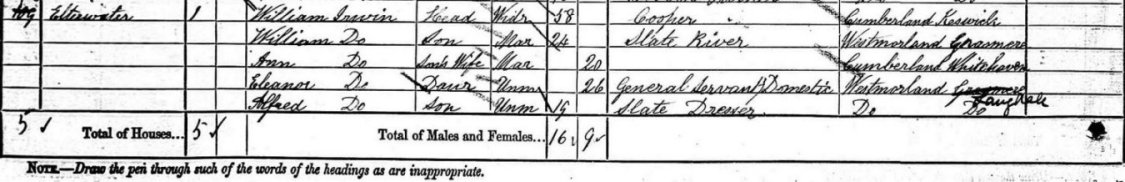 109 Elterwater 1 William Irwin Head Widr 58 Cooper Cumberland Keswick
William Do Son Mar 24 Slate River Westmorland Grasmere
Ann Do Sons Wife Mar 20 Cumberland Whitehaven
Eleanor Do Daur Unm 26 General Servant Domestic Westmorland Grasmere
Langdale
Alfred Do Son Unm 19 Slate Dresser Do Do
5 Total of Houses... 5 Total of Males and Females... 16 9
NOTE.—Draw the pen through such of the words of the headings as are inappropriate.